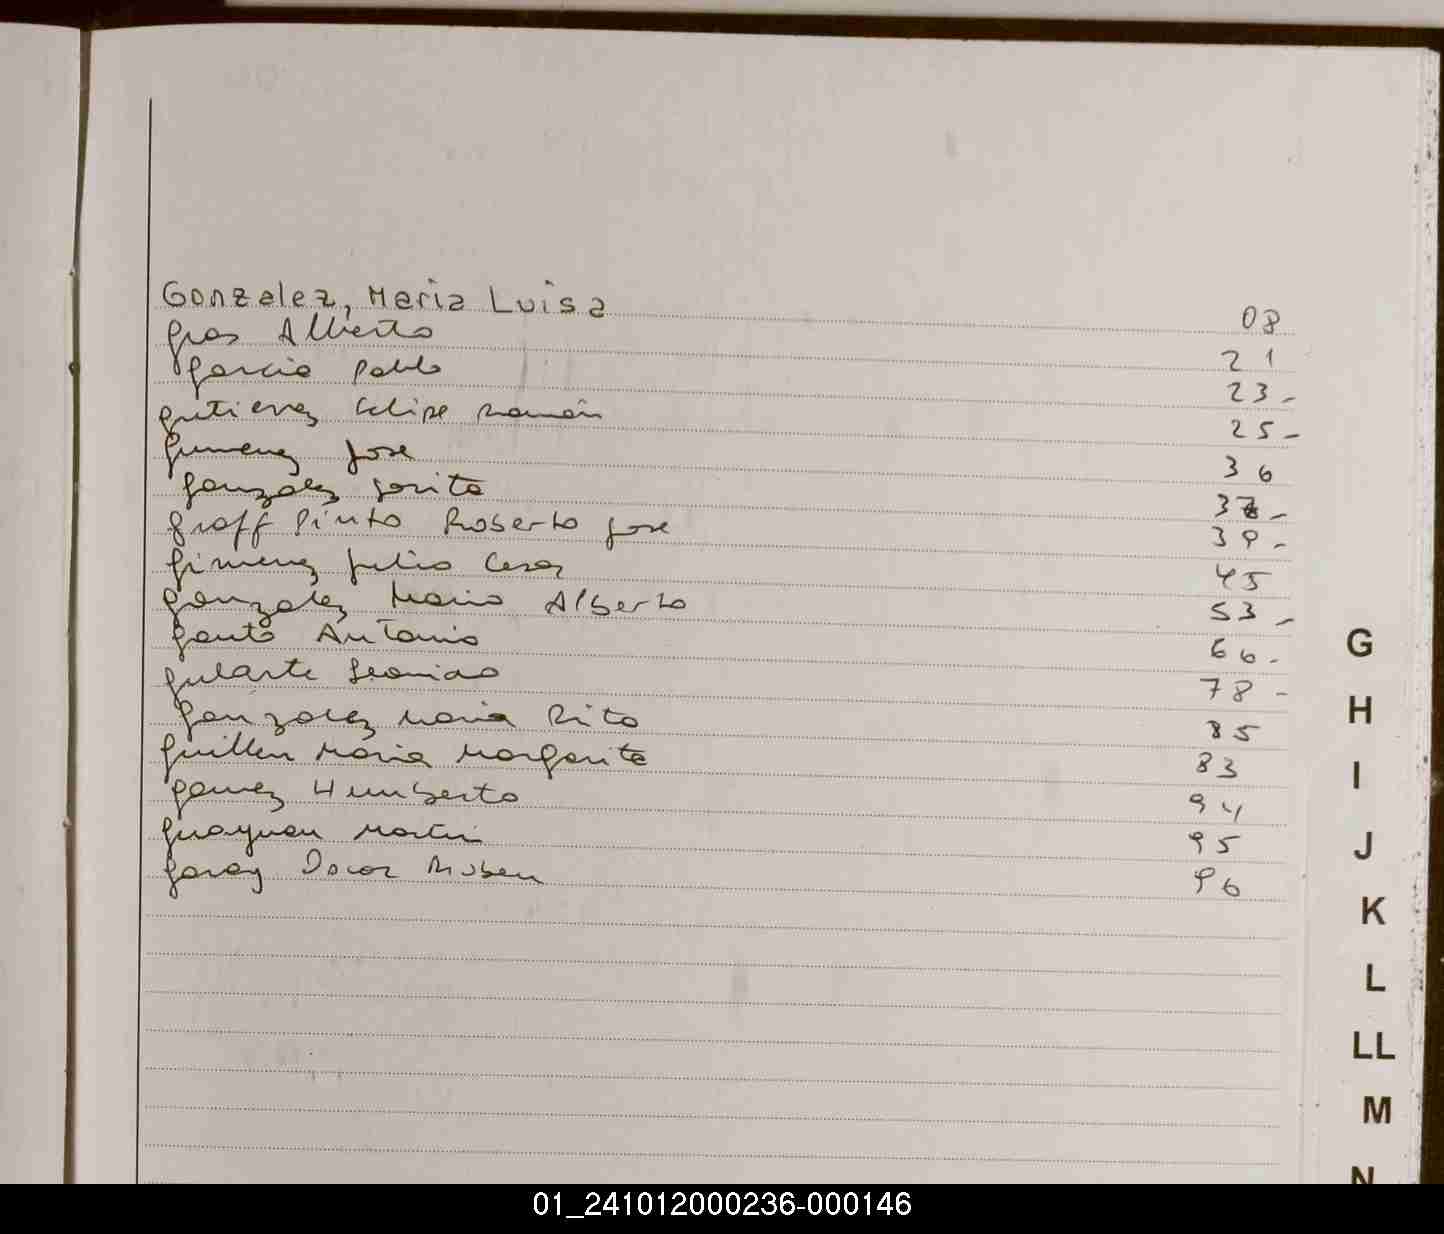 Gonzalez, Maria Luisa 08
Gras Alberto 21
Garcia Pablo 23-
Gutierrez Felipe Ramón 25-
Gimenez Jose 36
Gonzalez 37-
Graff Pinto Roberto Jose 39-
Gimenez Julio Cesar 45
Gonzalez Mario Alberto 53-
Gauto Antonio 66-
Gularte Leonidas 78-
Gonzalez Maria Rita 85
Guillen Maria Margarita 83
Gomez Humberto 94
Martin 95
Garay Oscar Ruben 96
G
H
I
J
K
L
LL
M
N
01_241012000236-000146